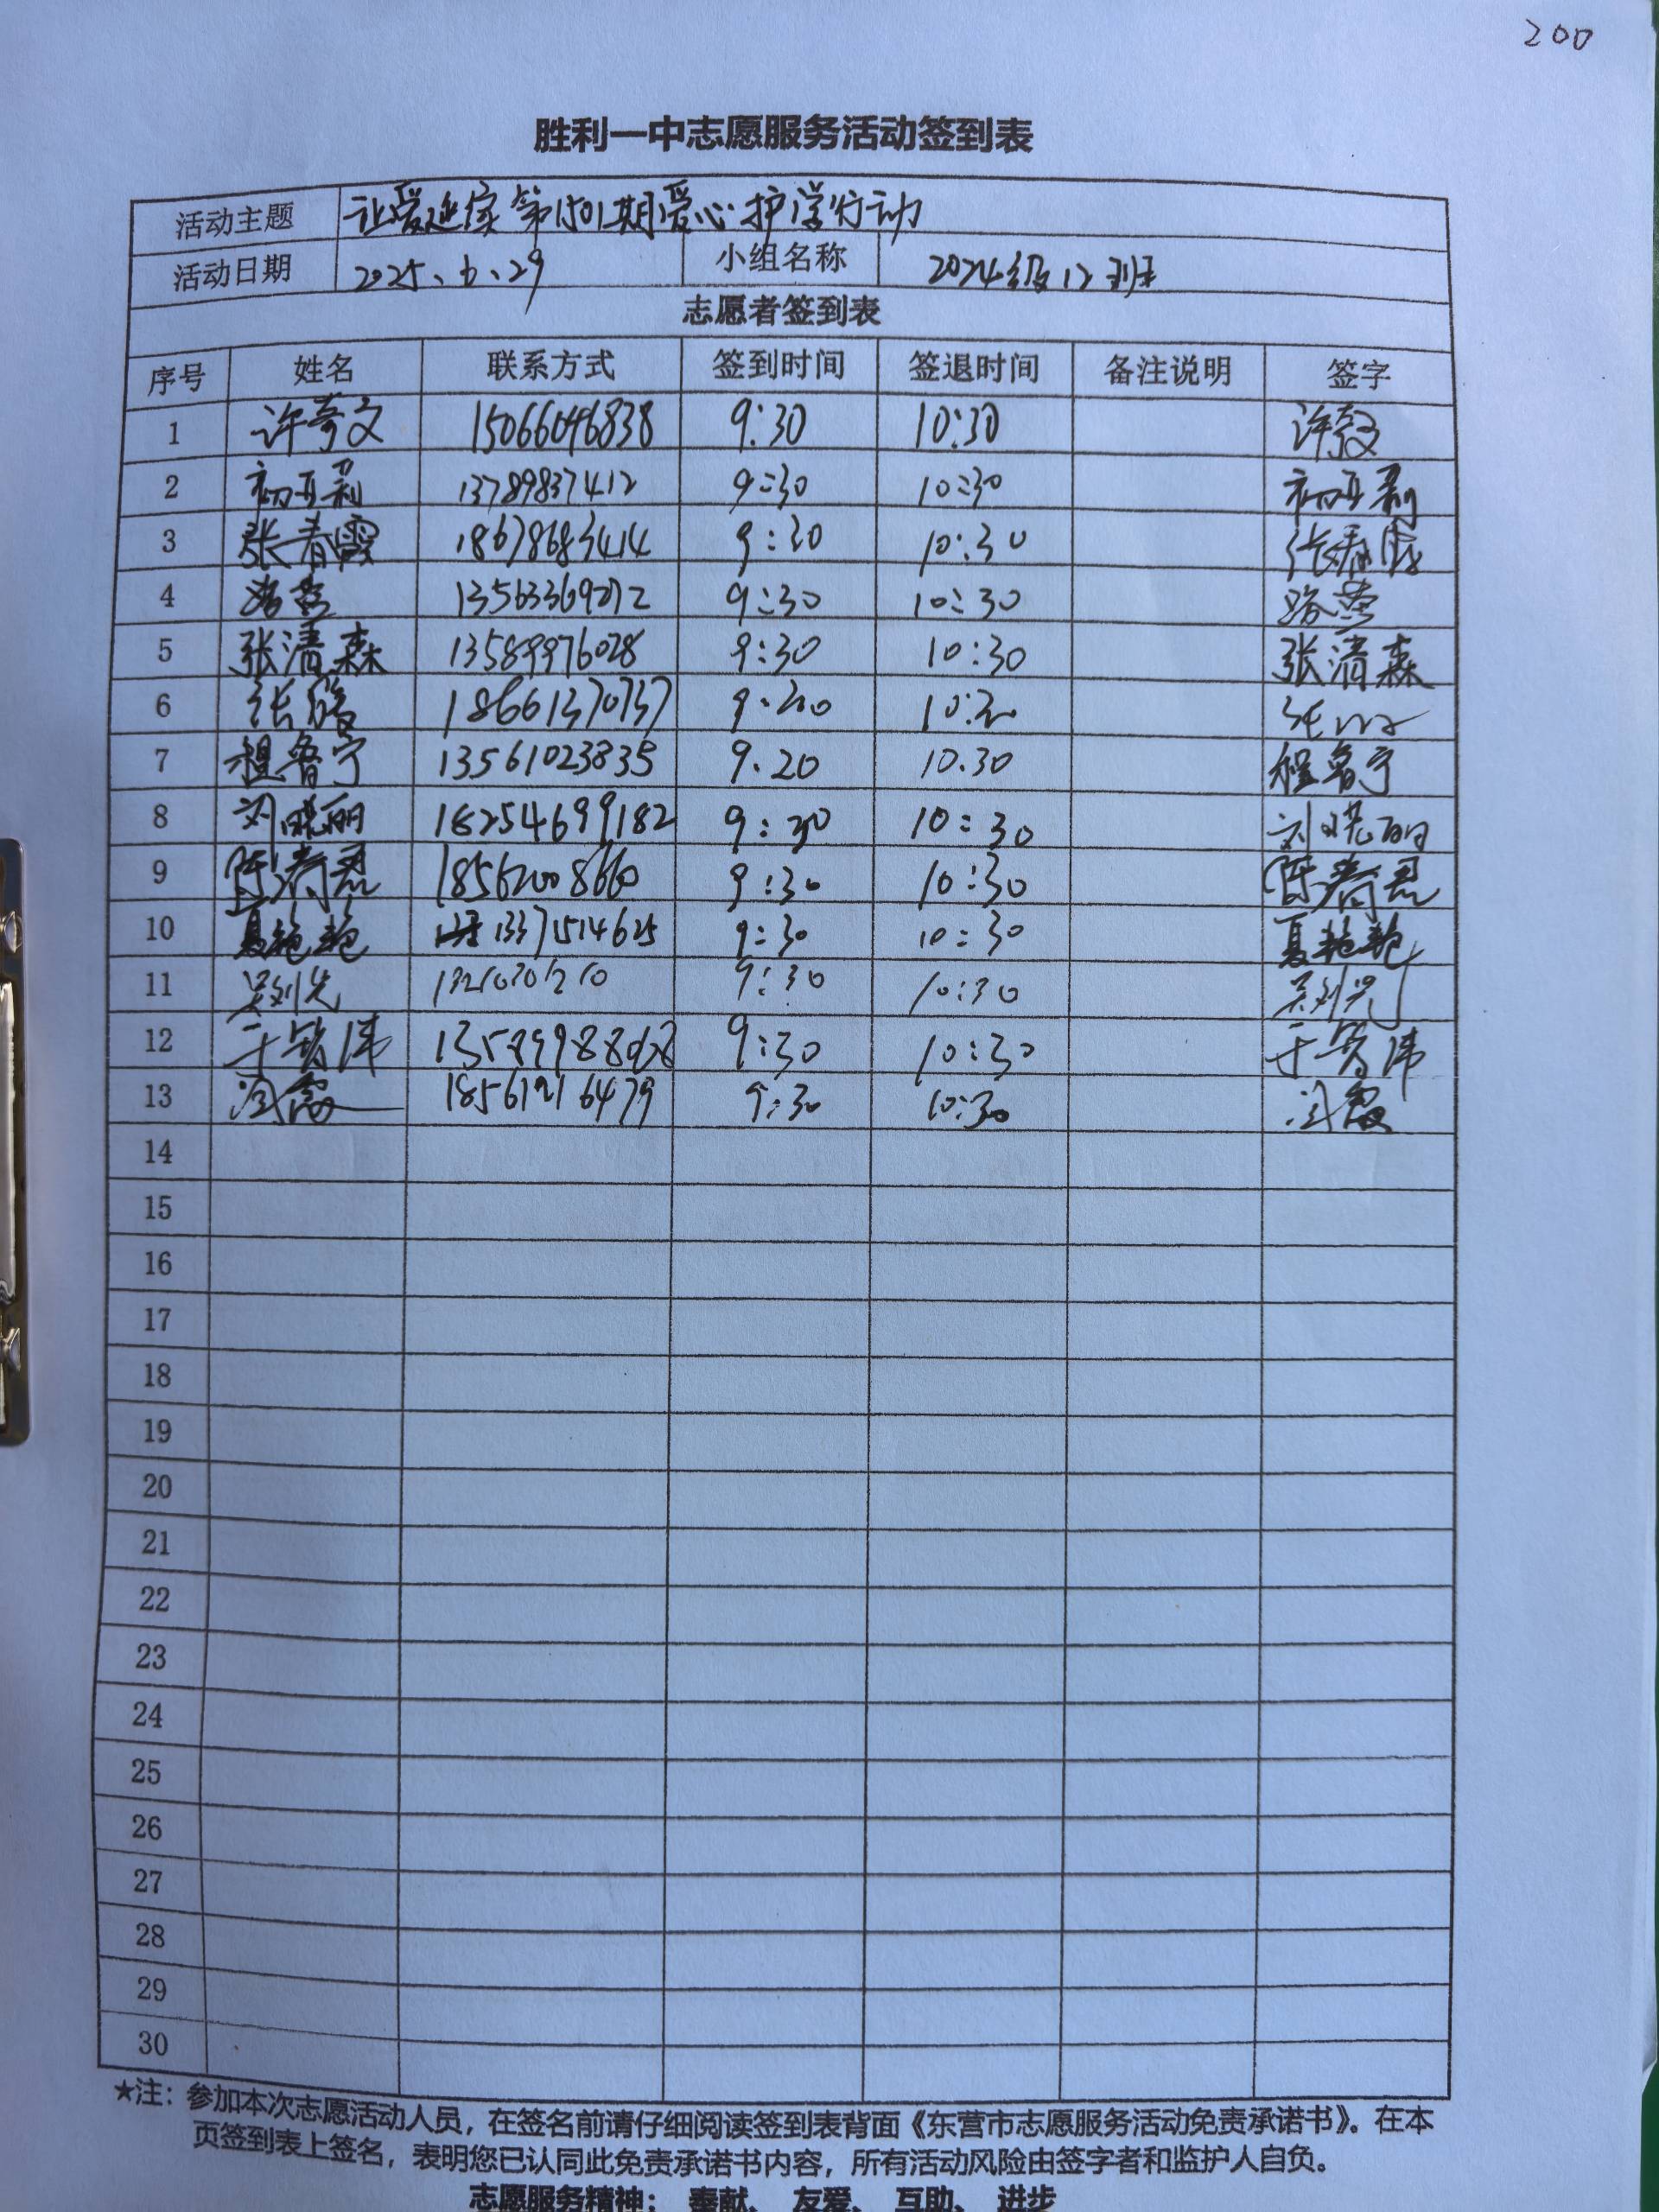 200
胜利一中志愿服务活动签到表
活动主题 让爱延续第1501期爱心护学行动
活动日期 2025、6、29 小组名称 2024级12班
志愿者签到表
序号 姓名 联系方式 签到时间 签退时间 备注说明 签字
1 许奇文 15066096838 9:30 10:30 许奇文
2 初亚莉 13789837412 9:30 10:30 初亚莉
3 张春霞 18678683414 9:30 10:30 张春霞
4 13563369272 9:30 10:30
5 张清森 13589976028 9:30 10:30 张清森
6 张 18661370737 10:30 张
7 程鲁宁 13561023835 9.20 10.30 程鲁宁
8 刘晓丽 18254699182 9:30 10:30 刘晓丽
9 陈 18562008660 9:30 10:30 陈
10 夏艳艳 13371514625 9:30 10:30 夏艳艳
11 9:30 10:30
12 于 9:30 10:30 于
13 闫霞 18561216479 9:30 10:30 闫霞
14
15
16
17
18
19
20
21
22
23
24
25
26
27
28
29
30
★注：参加本次志愿活动人员，在签名前请仔细阅读签到表背面《东营市志愿服务活动免责承诺书》。在本
页签到表上签名，表明您已认同此免责承诺书内容，所有活动风险由签字者和监护人自负。
志愿服务精神： 奉献、 友爱、 互助、 进步